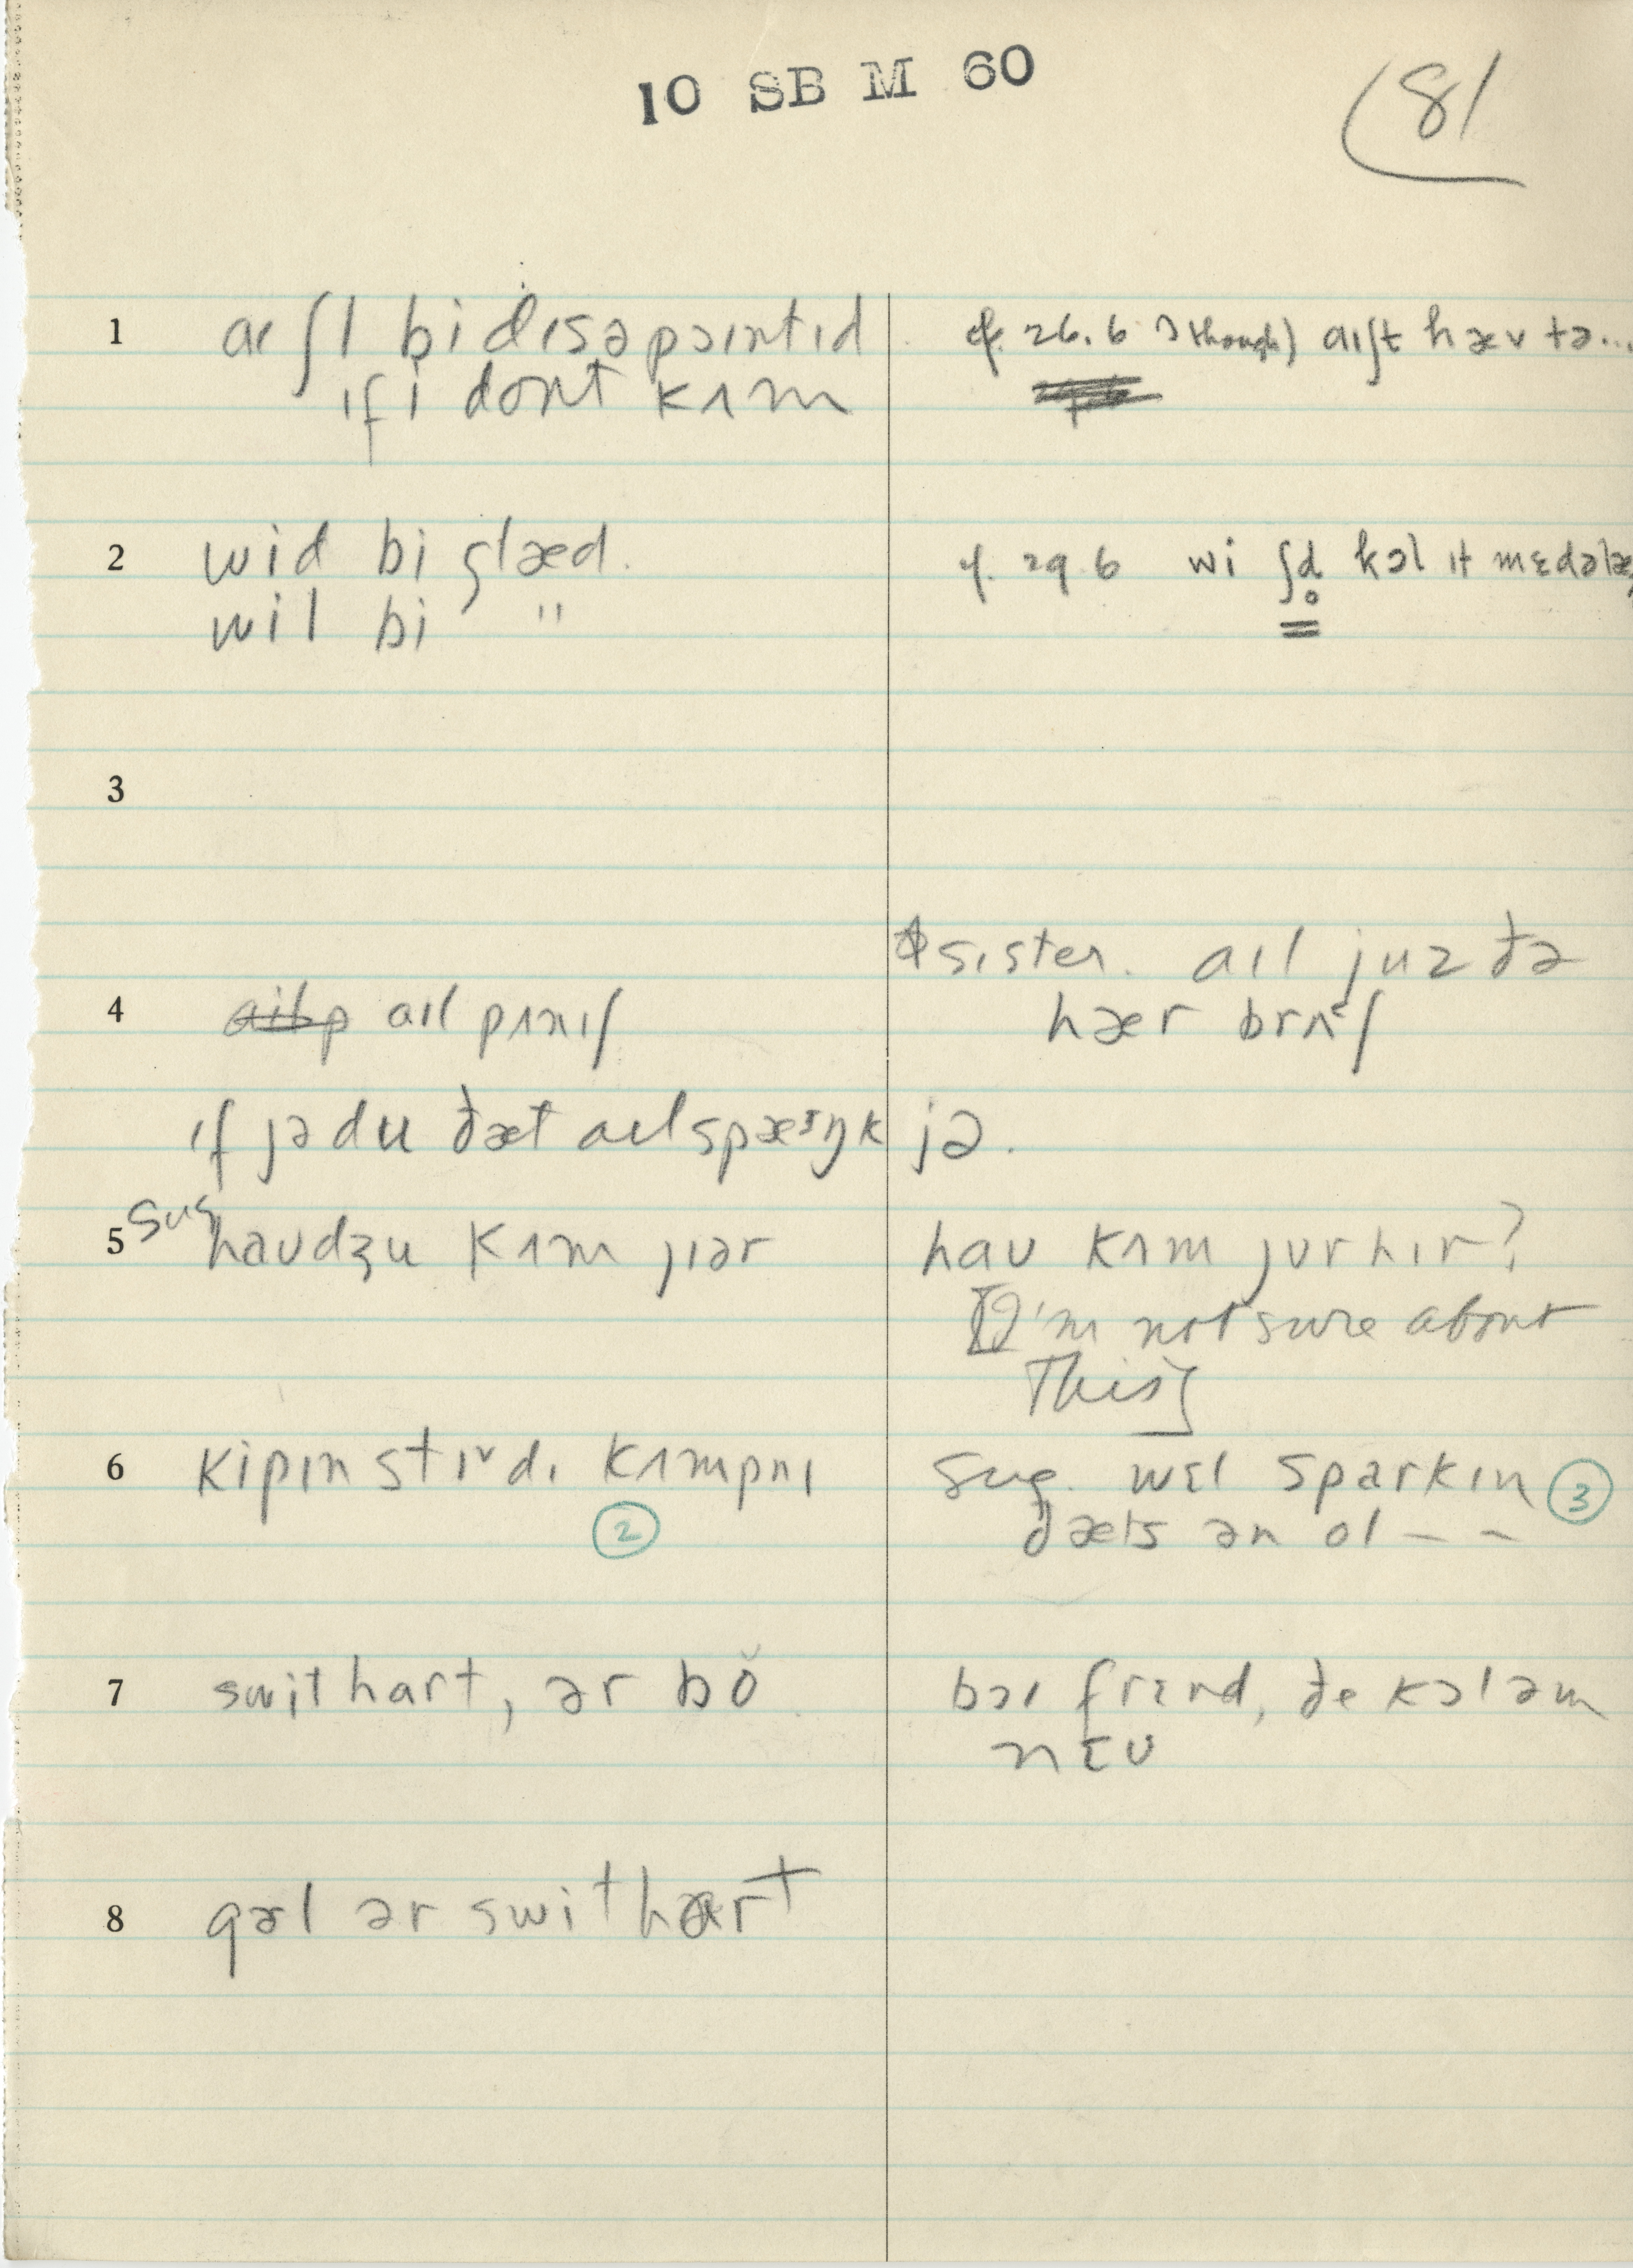 10 SB M 60
81
1 aɪ ʃl bi dɪsəpɔɪntɪd
ɪf i dont kʌm
cf. 26.6 (though) aɪ ʃt hæv tə...
2 wid bi glæd.
wil bi "
cf. 29.6 wi ʃd̥ kɔl ɪt
3
*sister. aɪl juz ðə
hær brʌʃ
4 aɪl pʌnɪʃ
ɪf jə du ðæt aɪl spæɪŋk jə.
5 sug haudʒu kʌm jɪər
hau kʌm jur hɪr?
[I'm not sure about
This]
6 kipɪn stɪdɪ kʌmpnɪ
②
sug. wɛl sparkɪn ③
ðæts ən ol — —
7 swithart, ər bŏ
bɔɪ frɛnd, ðe kɔl əm
nɛu
8 gəl ər swithart